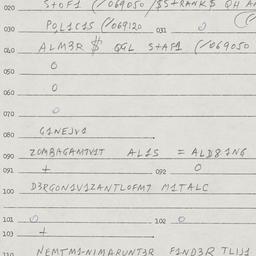 020 S+OF1 (/069050 /$S+RANK$ QH
030 POL1C1S (/069120 031 0
040 ALM3R $ QGL S+AF1 (/069050
050 0
060 0
070 0
080 G1NEJV1
090 ZOMBAGAMTV1T AL1S = ALD81N6
091 + 092 0
100 D3RGON1V1ZANTLOFMT M1TALC
101 0 102 0
103 +
110 NEMTM1-NIMARUNT3R F1ND3R TL1J1